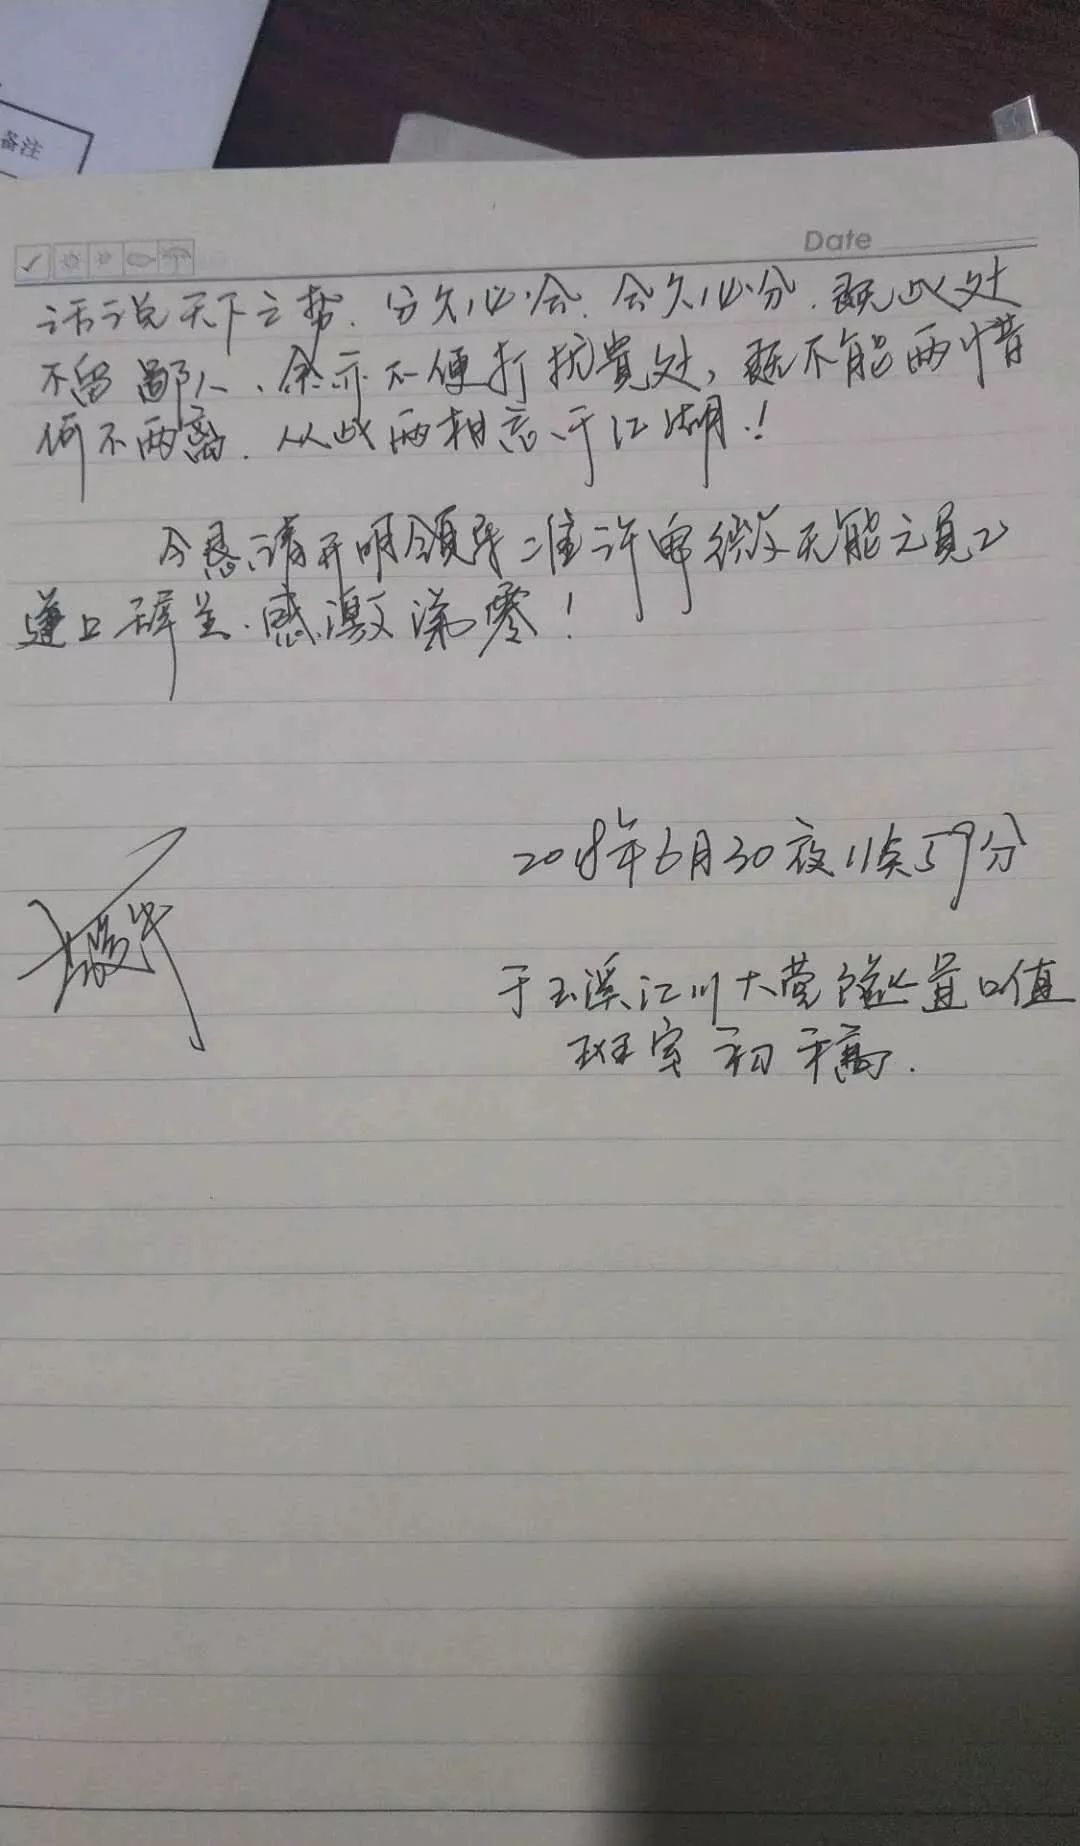 备注
Date
话说天下之势.分久必合.合久必分.既此处
不留鄙人、余亦不便打扰贵处,既不能两惜
何不两离.从此两相忘于江湖.!
今恳请开明领导准许卑微无能之员工
递上辞呈.感激涕零!
2018年6月30夜11点59分
于玉溪江川大营隧道口值
班室初稿.